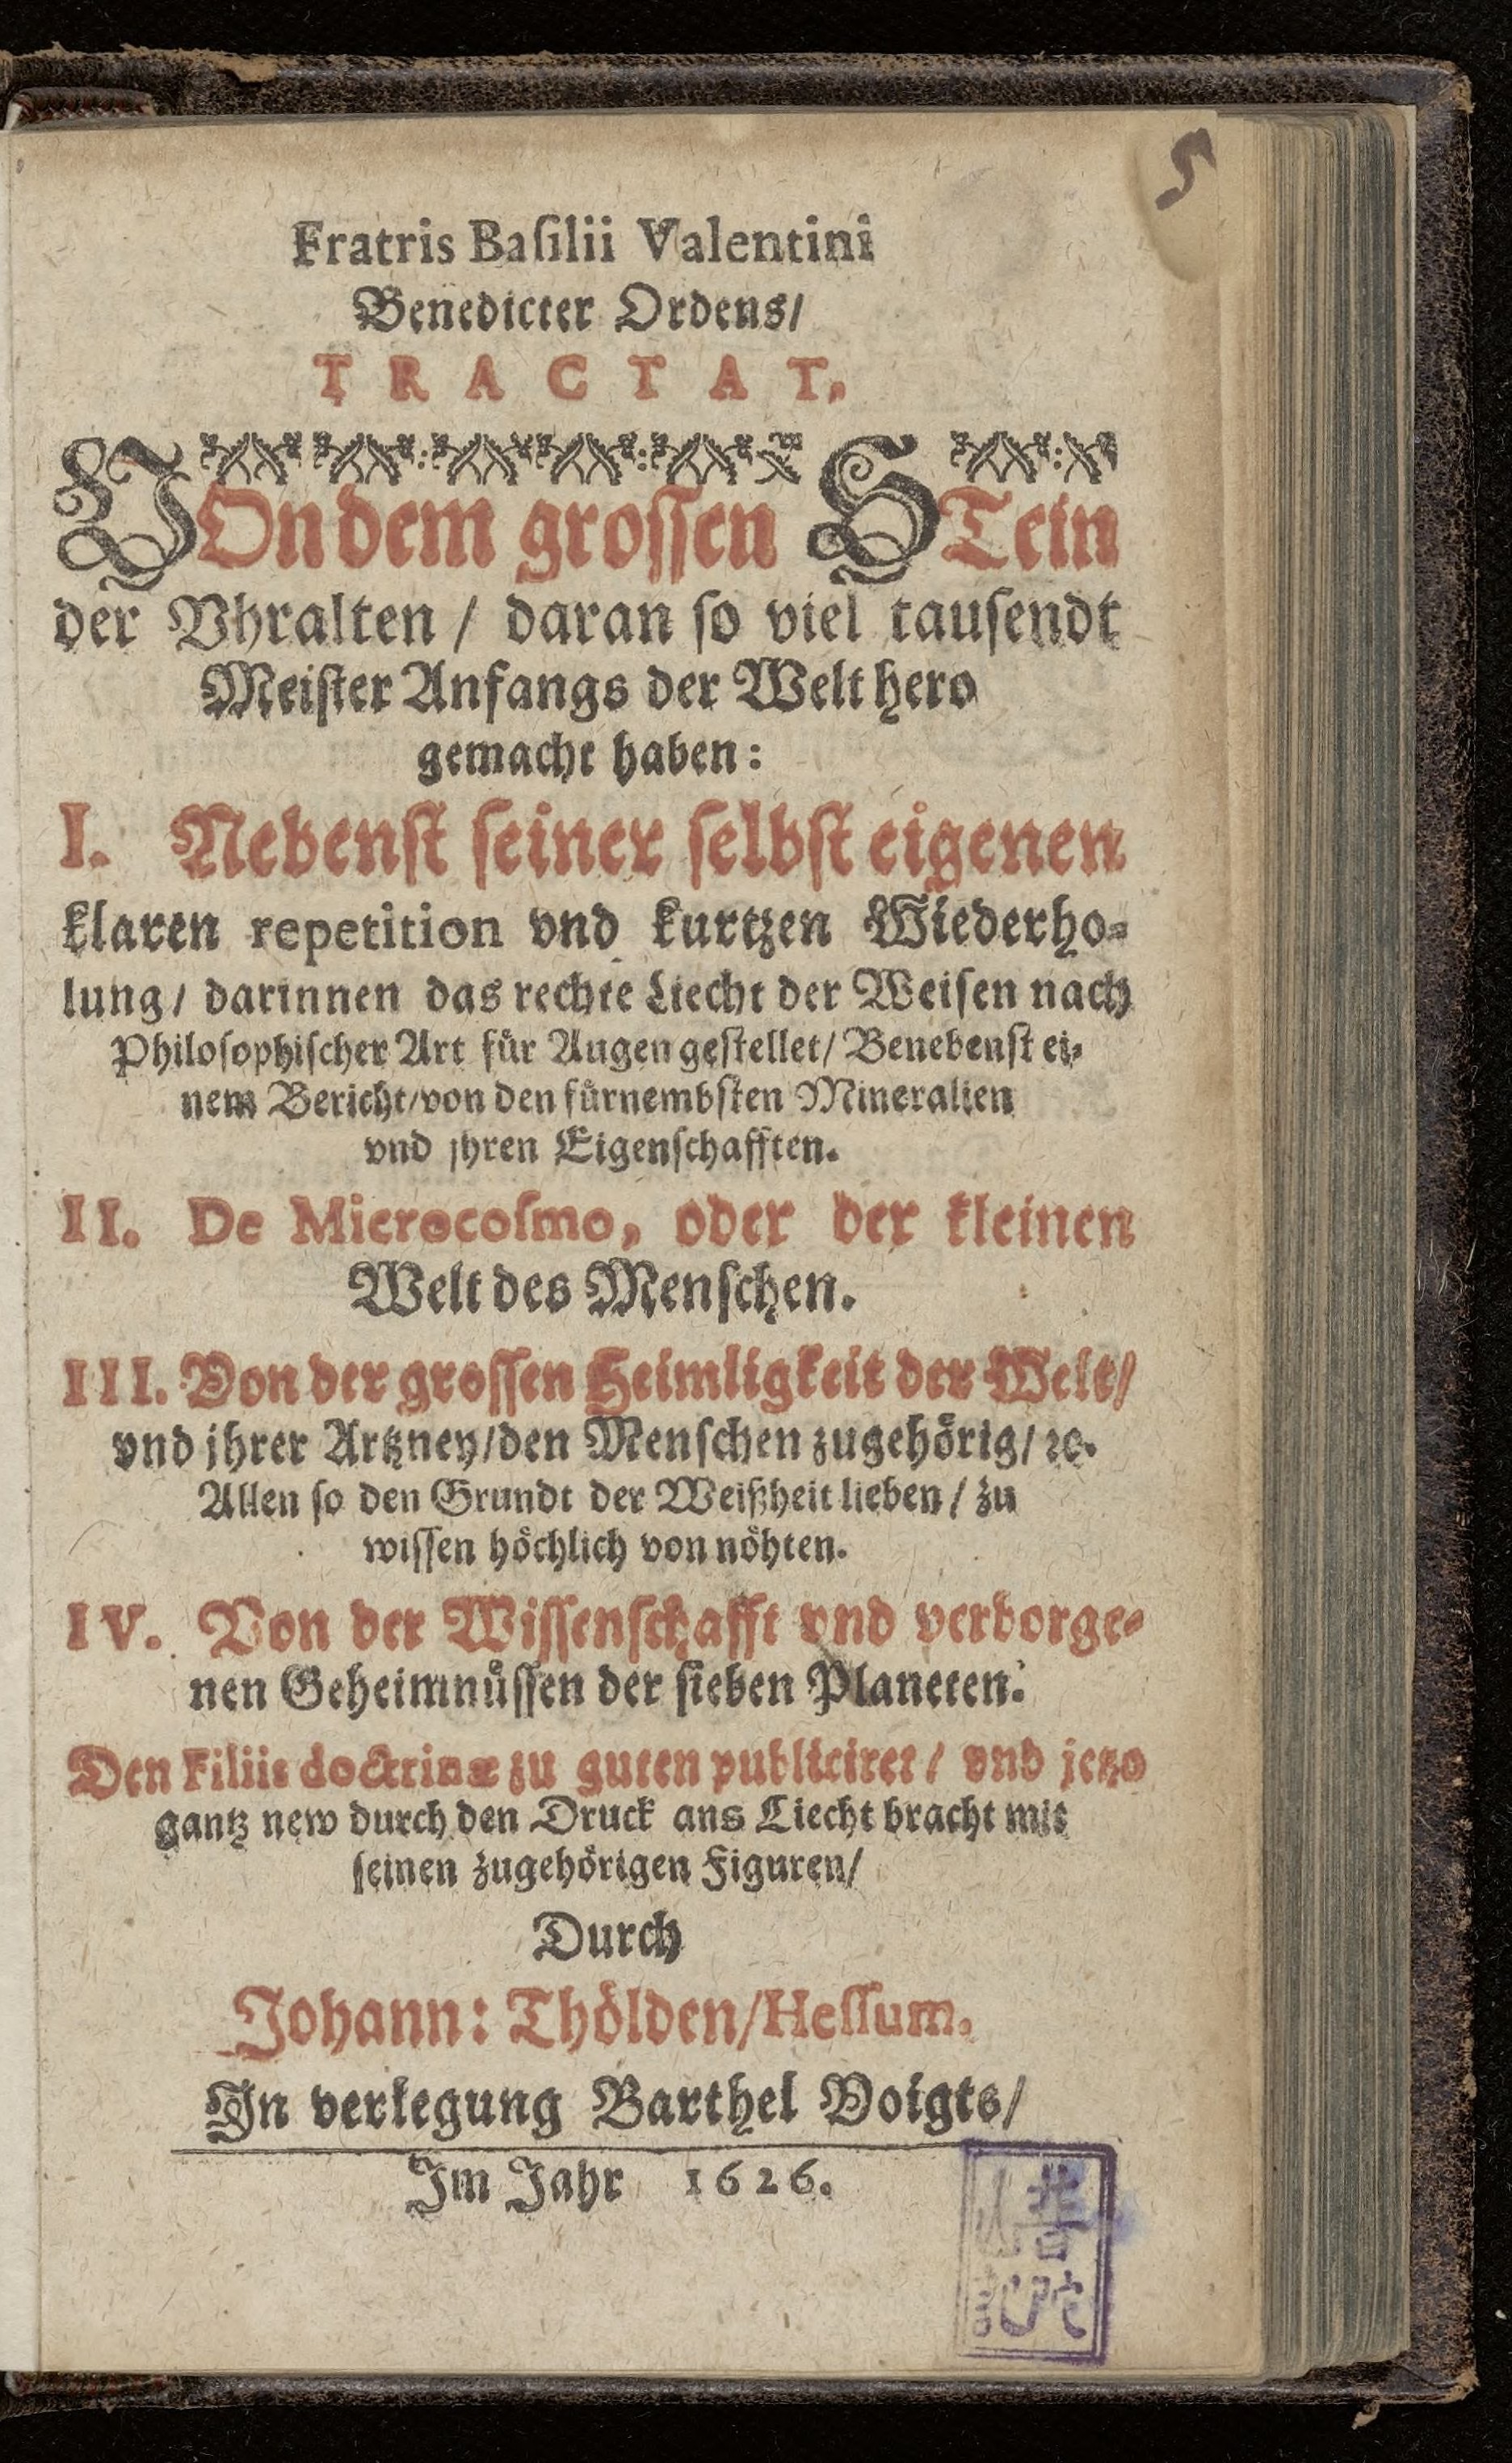 5
Fratris Baſilii Valentini
Benedicter Ordens/
TRACTAT,
VOn dem groſſen STein
der Vhralten / daran ſo viel tauſendt
Meiſter Anfangs der Welt hero
gemacht haben:
I. Nebenſt ſeiner ſelbſt eigenen
klaren repetition vnd kurtzen Wiederho-
lung/ darinnen das rechte Liecht der Weiſen nach
Philoſophiſcher Art fuͤr Augen geſtellet/ Benebenſt ei-
nem Bericht/von den fuͤrnembſten Mineralien
vnd jhren Eigenſchafften.
II. De Microcoſmo, oder der kleinen
Welt des Menſchen.
III. Von der groſſen Heimligkeit der Welt/
vnd jhrer Artzney/den Menſchen zugehoͤrig/ ꝛc.
Allen ſo den Grundt der Weißheit lieben / zu
wiſſen hoͤchlich von noͤhten.
IV. Von der Wiſſenſchafft vnd verborge-
nen Geheimnuͤſſen der ſieben Planeten.
Den Filiis doctrinæ zu guten publiciret / vnd jetzo
gantz new durch den Druck ans Liecht bracht mit
ſeinen zugehoͤrigen Figuren/
Durch
Johann: Thoͤlden/Heſſum.
In verlegung Barthel Voigts/
Im Jahr 1626.
普陀
山記